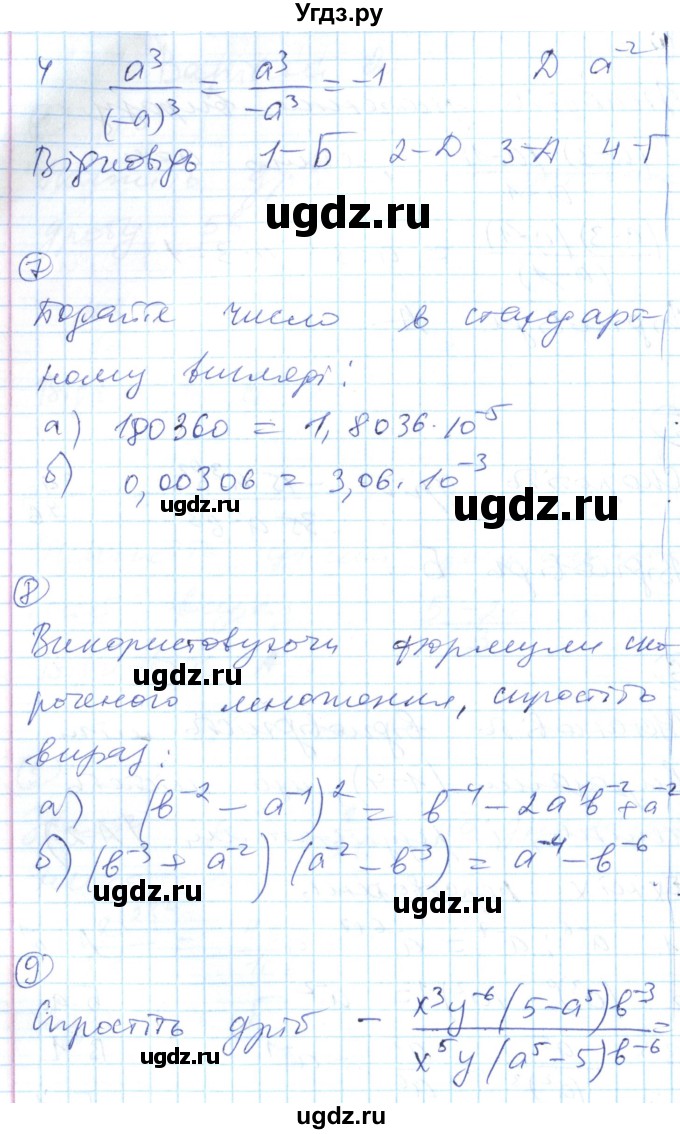 Угдз.ру
4 a³/(-a)³ = a³/-a³ = -1 Д a⁻²
Відповідь 1-Б 2-D 3-А 4-Г
ugdz.ru
7
Подайте число в стандарт-
ному вигляді:
а) 180360 = 1,8036·10⁻⁵
б) 0,00306 = 3,06·10⁻³
ugdz.ru ugdz.ru
8
Використовуючи формули ско-
ugdz.ru
роченого множення, спростіть
вираз:
а) (b⁻² - a⁻¹)² = b⁻⁴ - 2a⁻¹b⁻² + a⁻²
б) (b⁻³ + a⁻²)(a⁻² - b⁻³) = a⁻⁴ - b⁻⁶
ugdz.ru ugdz.ru
9
Спростіть дріб - x³y⁻⁶(5-a⁵)b⁻³/x⁵y(a⁵-5)b⁻⁶ =
ugdz.ru ugdz.ru
ugdz.ru